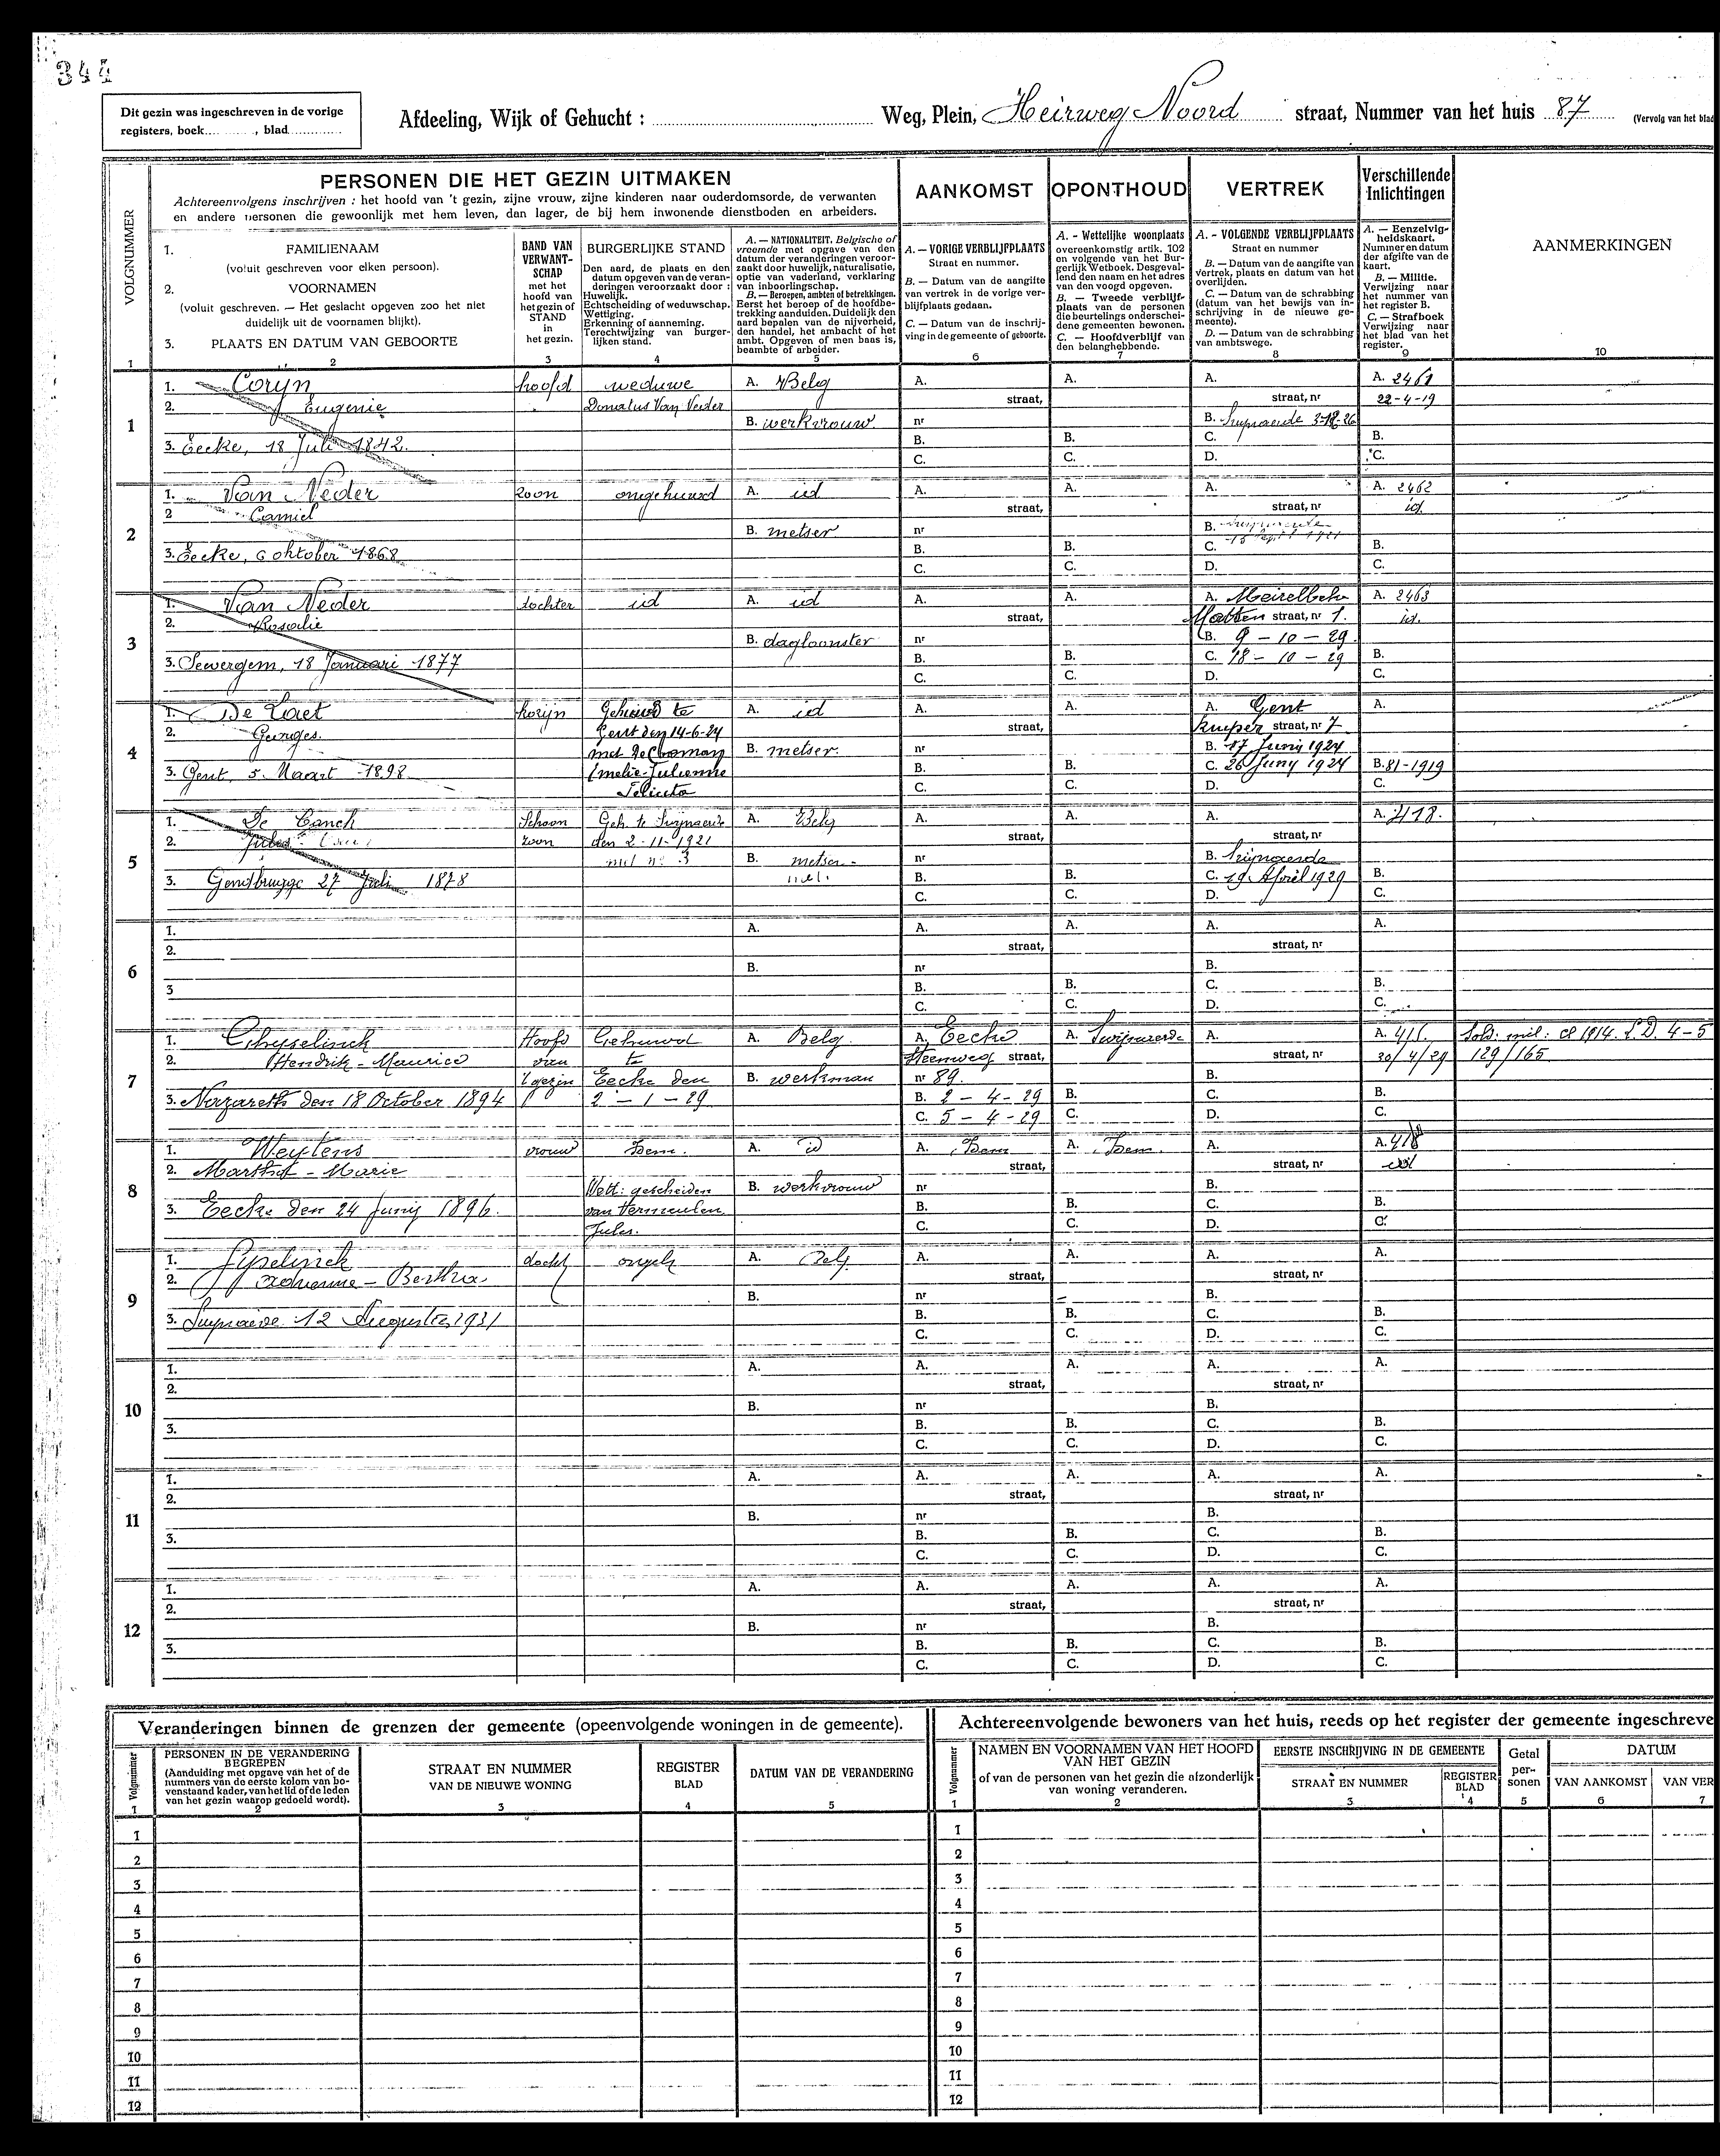 344
Dit gezin was ingeschreven in de vorige
registers, boek, blad
Afdeeling, Wijk of Gehucht : Weg, Plein, Heirweg Noord straat, Nummer van het huis 87 (Vervolg van het blad
PERSONEN DIE HET GEZIN UITMAKEN
Achtereenvolgens inschrijven : het hoofd van 't gezin, zijne vrouw, zijne kinderen naar ouderdomsorde, de verwanten
en andere personen die gewoonlijk met hem leven, dan lager, de bij hem inwonende dienstboden en arbeiders.
AANKOMST
OPONTHOUD
VERTREK
Verschillende
Inlichtingen
AANMERKINGEN
VOLGNUMMER
1. FAMILIENAAM
(voluit geschreven voor elken persoon).
2. VOORNAMEN
(voluit geschreven. — Het geslacht opgeven zoo het niet
duidelijk uit de voornamen blijkt).
3. PLAATS EN DATUM VAN GEBOORTE
BAND VAN
VERWANT-
SCHAP
met het
hoofd van
het gezin of
STAND
in
het gezin.
BURGERLIJKE STAND
Den aard, de plaats en den
datum opgeven van de veran-
deringen veroorzaakt door :
Huwelijk.
Echtscheiding of weduwschap.
Wettiging.
Erkenning of aanneming.
Terechtwijzing van burger-
lijken stand.
A. — NATIONALITEIT. Belgische of
vreemde met opgave van den
datum der veranderingen veroor-
zaakt door huwelijk, naturalisatie,
optie van vaderland, verklaring
van inboorlingschap.
B. — Beroepen, ambten of betrekkingen.
Eerst het beroep of de hoofdbe-
trekking aanduiden. Duidelijk den
aard bepalen van de nijverheid,
den handel, het ambacht of het
ambt. Opgeven of men baas is,
beambte of arbeider.
A. — VORIGE VERBLIJFPLAATS
Straat en nummer.
B. — Datum van de aangifte
van vertrek in de vorige ver-
blijfplaats gedaan.
C. — Datum van de inschrij-
ving in de gemeente of geboorte.
A. - Wettelijke woonplaats
overeenkomstig artik. 102
en volgende van het Bur-
gerlijk Wetboek. Desgeval-
lend den naam en het adres
van den voogd opgeven.
B. — Tweede verblijf-
plaats van de personen
die beurtelings onderschei-
dene gemeenten bewonen.
C. — Hoofdverblijf van
den belanghebbende.
A. - VOLGENDE VERBLIJFPLAATS
Straat en nummer
B. — Datum van de aangifte van
vertrek, plaats en datum van het
overlijden.
C. — Datum van de schrabbing
(datum van het bewijs van in-
schrijving in de nieuwe ge-
meente).
D. — Datum van de schrabbing
van ambtswege.
A. — Eenzelvig-
heidskaart.
Nummer en datum
der afgifte van de
kaart.
B. — Militie.
Verwijzing naar
het nummer van
het register B.
C. — Strafboek
Verwijzing naar
het blad van het
register.
1 2 3 4 5 6 7 8 9 10
1. Coryn hoofd weduwe A. Belg A. A. A. A. 2461
2. Eugenie Donatus Van Neder straat, straat, nr 22-4-19
1 B. werkvrouw nr B.
3. Eecke, 18 Juli 1842. B. B. C. B.
C. C. D. C.
1. Van Neder zoon ongehuwd A. id A. A. A. A. 2462
2 Camiel straat, straat, nr id.
2 B. metser nr B.
3. Eecke, 6 oktober 1868 B. B. C. B.
C. C. D. C.
1. Van Neder dochter id A. id A. A. A. A. 2463
2. Rosalie straat, straat, nr 1. id.
3 B. dagloonster nr B. 9 – 10 – 29.
3. 18 Januari 1877 B. B. C. 18 – 10 – 29 B.
C. C. D. C.
1. De Laet A. id A. A. A. Gent A.
2. Georges. Gent den 14-6-24 straat, Kuiper straat, nr 7
4 B. metser. nr B. 17 Juny 1924
3. Gent, 5. Maart 1898 B. B. C. 26 Juny 1924 B. 81-1919
C. C. D. C.
1. Schoon A. Belg A. A. A. A. 418.
2. Jules zoon den 2-11-1921 straat, straat, nr
5 B. metser nr B.
3. Gendbrugge 27 Juli 1878 B. B. C. 29 April 1929 B.
C. C. D. C.
1. A. A. A. A. A.
2. straat, straat, nr
6 B. nr B.
3 B. B. C. B.
C. C. D. C.
1. Ghyselinck Hoofd Gehuwd A. Belg A. Eecke A. A. A.
2. Hendrik - Maurice van te Steenweg straat, straat, nr 30/4/29 129/165
7 't gezin Eecke den B. werkman nr 89. B.
3. Nazareth den 18 October 1894 2 – 1 – 29 B. 2 – 4 – 29 B. C. B.
C. 5 – 4 – 29 C. D. C.
1. Weytens vrouw Idem. A. id A. Idem A. Idem. A. A.
2. Martha - Marie straat, straat, nr
8 Wett: gescheiden B. werkvrouw nr B.
3. Eecke den 24 Juny 1896. van Vermeulen B. B. C. B.
Jules. C. C. D. C.
1. docht ongeh A. Belg A. A. A. A.
2. Adrienne - Bertha straat, straat, nr
9 B. nr B.
3. 12 Augustus 1931 B. B. C. B.
C. C. D. C.
1. A. A. A. A. A.
2. straat, straat, nr
10 B. nr B.
3. B. B. C. B.
C. C. D. C.
1. A. A. A. A. A.
2. straat, straat, nr
11 B. nr B.
3. B. B. C. B.
C. C. D. C.
1. A. A. A. A. A.
2. straat, straat, nr
12 B. nr B.
3. B. B. C. B.
C. C. D. C.
Veranderingen binnen de grenzen der gemeente (opeenvolgende woningen in de gemeente).
Volgnummer
PERSONEN IN DE VERANDERING
BEGREPEN
(Aanduiding met opgave van het of de
nummers van de eerste kolom van bo-
venstaand kader, van het lid of de leden
van het gezin waarop gedoeld wordt).
STRAAT EN NUMMER
VAN DE NIEUWE WONING
REGISTER
BLAD
DATUM VAN DE VERANDERING
1 2 3 4 5
1
2
3
4
5
6
7
8
9
10
11
12
Achtereenvolgende bewoners van het huis, reeds op het register der gemeente ingeschreve
Volgnummer
NAMEN EN VOORNAMEN VAN HET HOOFD
VAN HET GEZIN
of van de personen van het gezin die afzonderlijk
van woning veranderen.
EERSTE INSCHRIJVING IN DE GEMEENTE
STRAAT EN NUMMER
REGISTER
BLAD
Getal
per-
sonen
DATUM
VAN AANKOMST
VAN VER
1 2 3 4 5 6 7
1
2
3
4
5
6
7
8
9
10
11
12